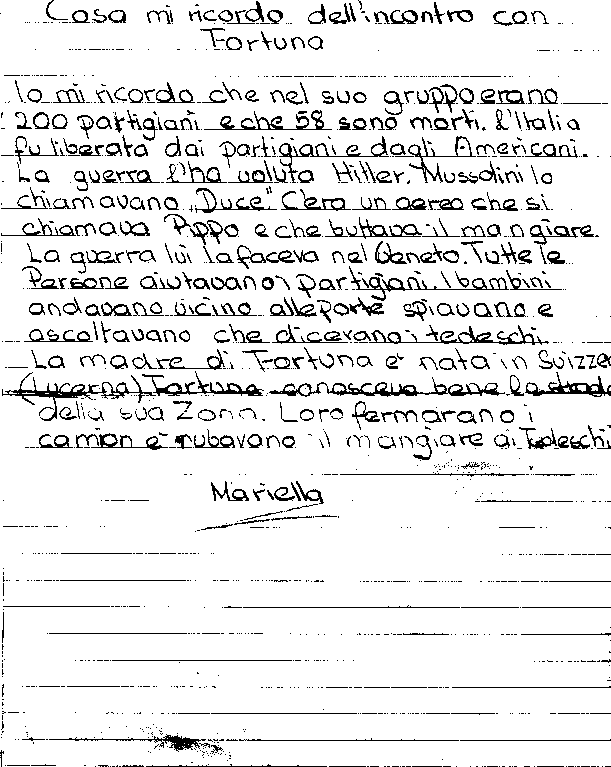 Cosa mi ricordo dell'incontro con
Fortuna
Io mi ricordo che nel suo gruppo erano
200 partigiani e che 58 sono morti. L'Italia
fu liberata dai partigiani e dagli Americani.
La guerra l'ha voluta Hitler. Mussolini lo
chiamavano „Duce". C'era un aereo che si
chiamava Pippo e che buttava il mangiare.
La guerra lui la faceva nel Veneto. Tutte le
Persone aiutavano i partigiani. I bambini
andavano vicino alle porte spiavano e
ascoltavano che dicevano i tedeschi.
La madre di Fortuna è nata in Svizzer
(Lucerna) Fortuna conosceva bene la strada
della sua Zona. Loro fermarano i
camion e rubavano il mangiare ai Tedeschi
Mariella